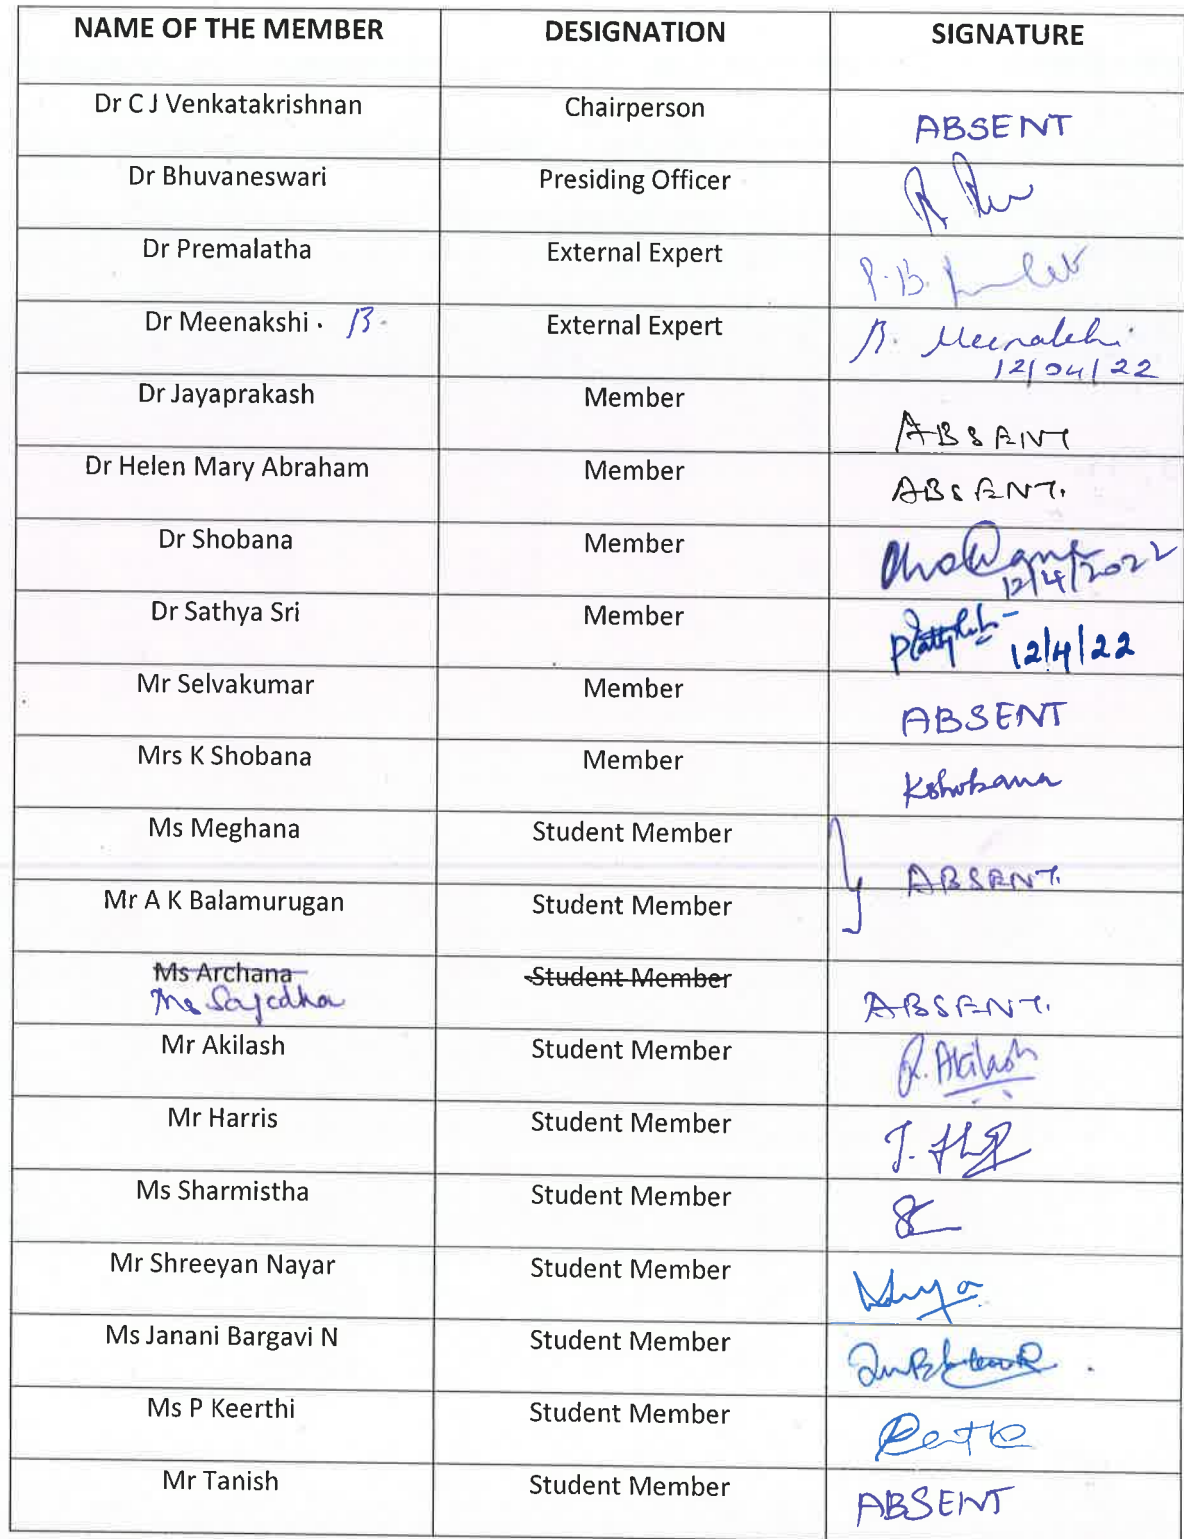 NAME OF THE MEMBER DESIGNATION SIGNATURE
Dr C J Venkatakrishnan Chairperson ABSENT
Dr Bhuvaneswari Presiding Officer
Dr Premalatha External Expert P.B.
Dr Meenakshi . B. External Expert B. Meenakshi
12/04/22
Dr Jayaprakash Member ABSENT
Dr Helen Mary Abraham Member ABSENT.
Dr Shobana Member
12/4/2022
Dr Sathya Sri Member 12/4/22
Mr Selvakumar Member ABSENT
Mrs K Shobana Member KShobana
Ms Meghana Student Member
ABSENT.
Mr A K Balamurugan Student Member
Ms Archana Student Member
Ms Sajedha ABSENT.
Mr Akilash Student Member R. Akilash
Mr Harris Student Member
Ms Sharmistha Student Member
Mr Shreeyan Nayar Student Member
Ms Janani Bargavi N Student Member
Ms P Keerthi Student Member
Mr Tanish Student Member ABSENT